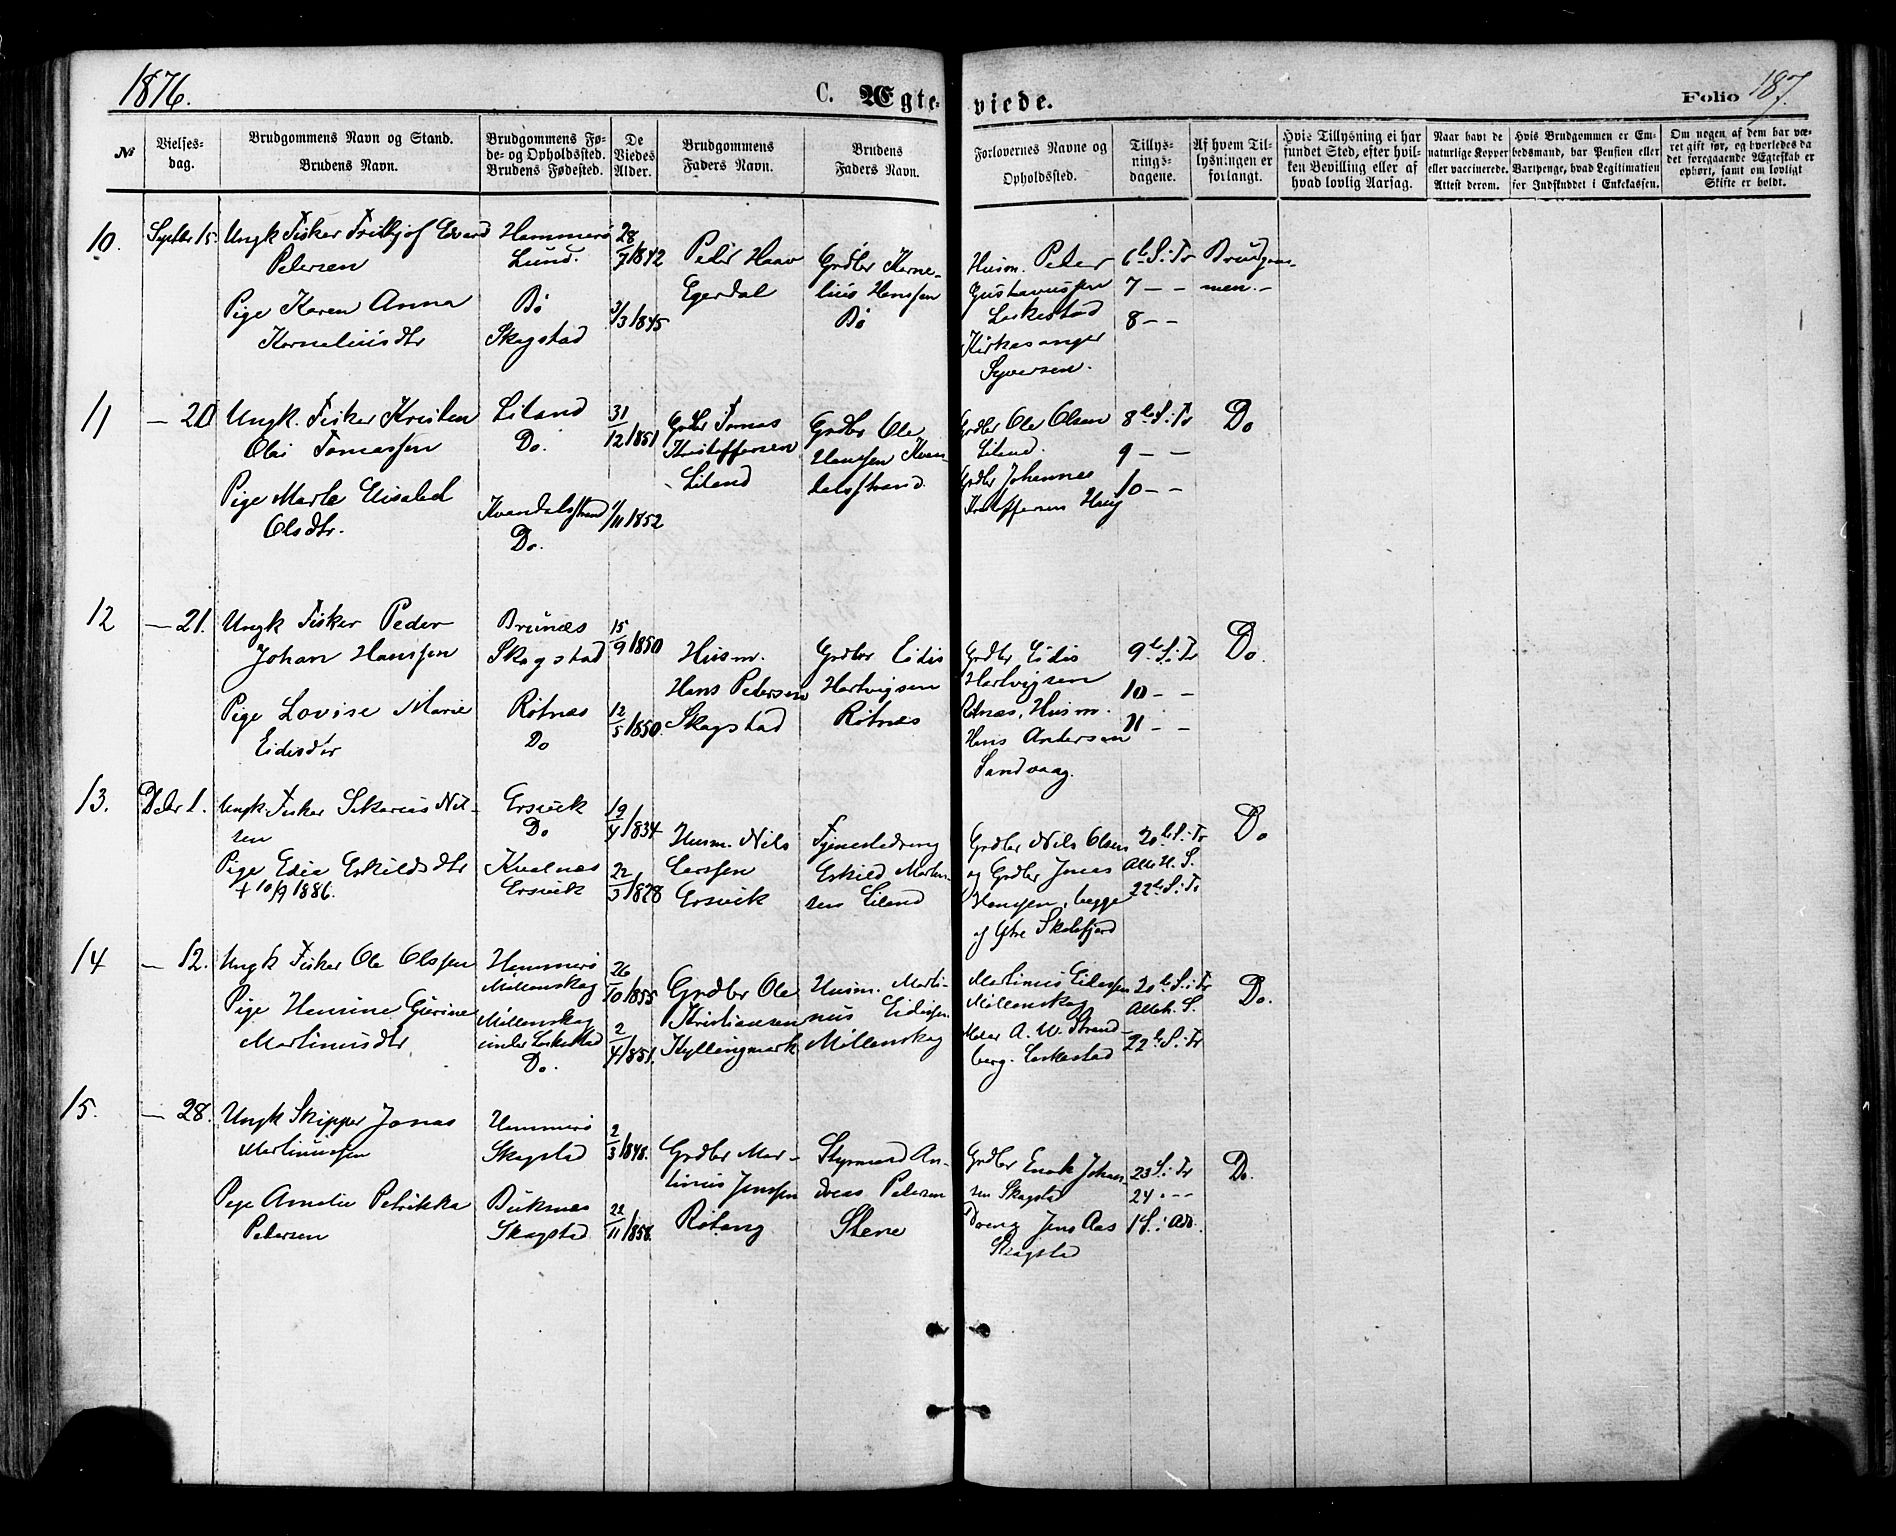 1876.
C. Ægte- viede.
Folio 187.
№
Vielses-
dag.
Brudgommens Navn og Stand.
Brudens Navn.
Brudgommens Fø-
de- og Opholdssted.
Brudens Fødested.
De
Viedes
Alder.
Brudgommens
Faders Navn.
Brudens
Faders Navn.
Forlovernes Navne og
Opholdssted.
Tillys-
nings-
dagene.
Af hvem Til-
lysningen er
forlangt.
Hvis Tillysning ei har
fundet Sted, efter hvil-
ken Bevilling eller af
hvad lovlig Aarsag.
Naar havt de
naturlige Kopper
eller vaccinerede.
Attest derom.
Hvis Brudgommen er Em-
bedsmand, har Pension eller
Vartpenge, hvad Legitimation
for Indskuddet i Enkekassen.
Om nogen af dem har væ-
ret gift før, og hvorledes da
det foregaaende Ægteskab er
ophørt, samt om lovligt
Skifte er holdt.
10.
Septbr 15.
Ungk Fisker Frithjof Edvard
Petersen
Pige Karen Anna
Korneliusdtr
Hammerø
Lund.
Bø
Skagstad
28/7 1842
/3 1845
Peder Haav
Egerdal
Grdbr Korne-
lius Hanssen
Bø
Husm. Peder
Gustavussen
Laskestad
Kirkesanger
Syversen.
6te S. i Tr
7 - -
8 - -
Brudgom-
men. -
11
- 20
Ungk. Fisker Kristen
Olai Tomassen
Pige Marte Elisabet
Olsdtr.
Liland
Do.
Kvandalsstrand
Do.
31/12 1851
/11 1852
Grdbr Tomas
Kristoffersen
Liland
Grdbr Ole
Hanssen Kvan-
dalsstrand
Grdbr Ole Olsen
Liland.
Grdbr Johannes
Kristoffersen Haug
8de S. i Tr
9 - -
10 - -
Do
12
- 21.
Ungk Fisker Peder
Johan Hanssen
Pige Lovise Marie
Eidisdtr
Brunæs
Skagstad
Rotnæs
Do
15/9 1850
12/5 1850.
Husm.
Hans Petersen
Skagstad
Grdbr Eidis
Hartvigsen
Rotnæs
Grdbr Eidis
Hartvigsen
Rotnæs, Husm.
Hans Andersen
Sandvaag.
9de S. i Tr
10 - -
11 - -
Do.
13.
Debr 1.
Ungk. Fisker Sikarius Nil-
sen
Pige Edia Eskildsdtr
+ 10/9 1886.
Ersvik
Do
Kvalnæs
Ersvik
19/4 1834
22/3 1828
Husm. Nils
Larssen
Ersvik
Eskild Morten-
sen Liland
Grdbr Nils Olsen
og Grdbr Jonas
Hanssen, begge
af Ytre Skotsfjord
20de S. i Tr
Alle H. S.
22de S. i Tr
Do
14
- 12.
Ungk Fisker Ole Olssen
Pige Hemine Gurine
Martinusdtr
Hammerø
Møllenskog
Møllenskog
under Laskestad
Do.
26/10 1855
2/4 1851.
Grdbr Ole
Kristiansen
Kyllingmark
Husm. Marti-
nus Eidissen
Møllenskog
Martinus Eidissen
Møllenskog
A. W. Strand-
berg. Laskestad
20de S. i Tr
Alleh. S.
22de S. i Tr
Do.
15.
- 28.
Ungk Skipper Jonas
Martinussen
Pige Amalie Petrikka
Petersen
Hammerø
Skagstad
Buksnæs
Skagstad
2/3 1848.
22/11 1856.
Grdbr Mar-
tinus Jenssen
Rotang
Styrmand An-
dreas Petersen
Stene
Grdbr Enok Johan-
sen Skagstad
Dreng Jens Aas
Skagstad
23 S. i Tr
24 - - -
1 S. i Adv.
Do.